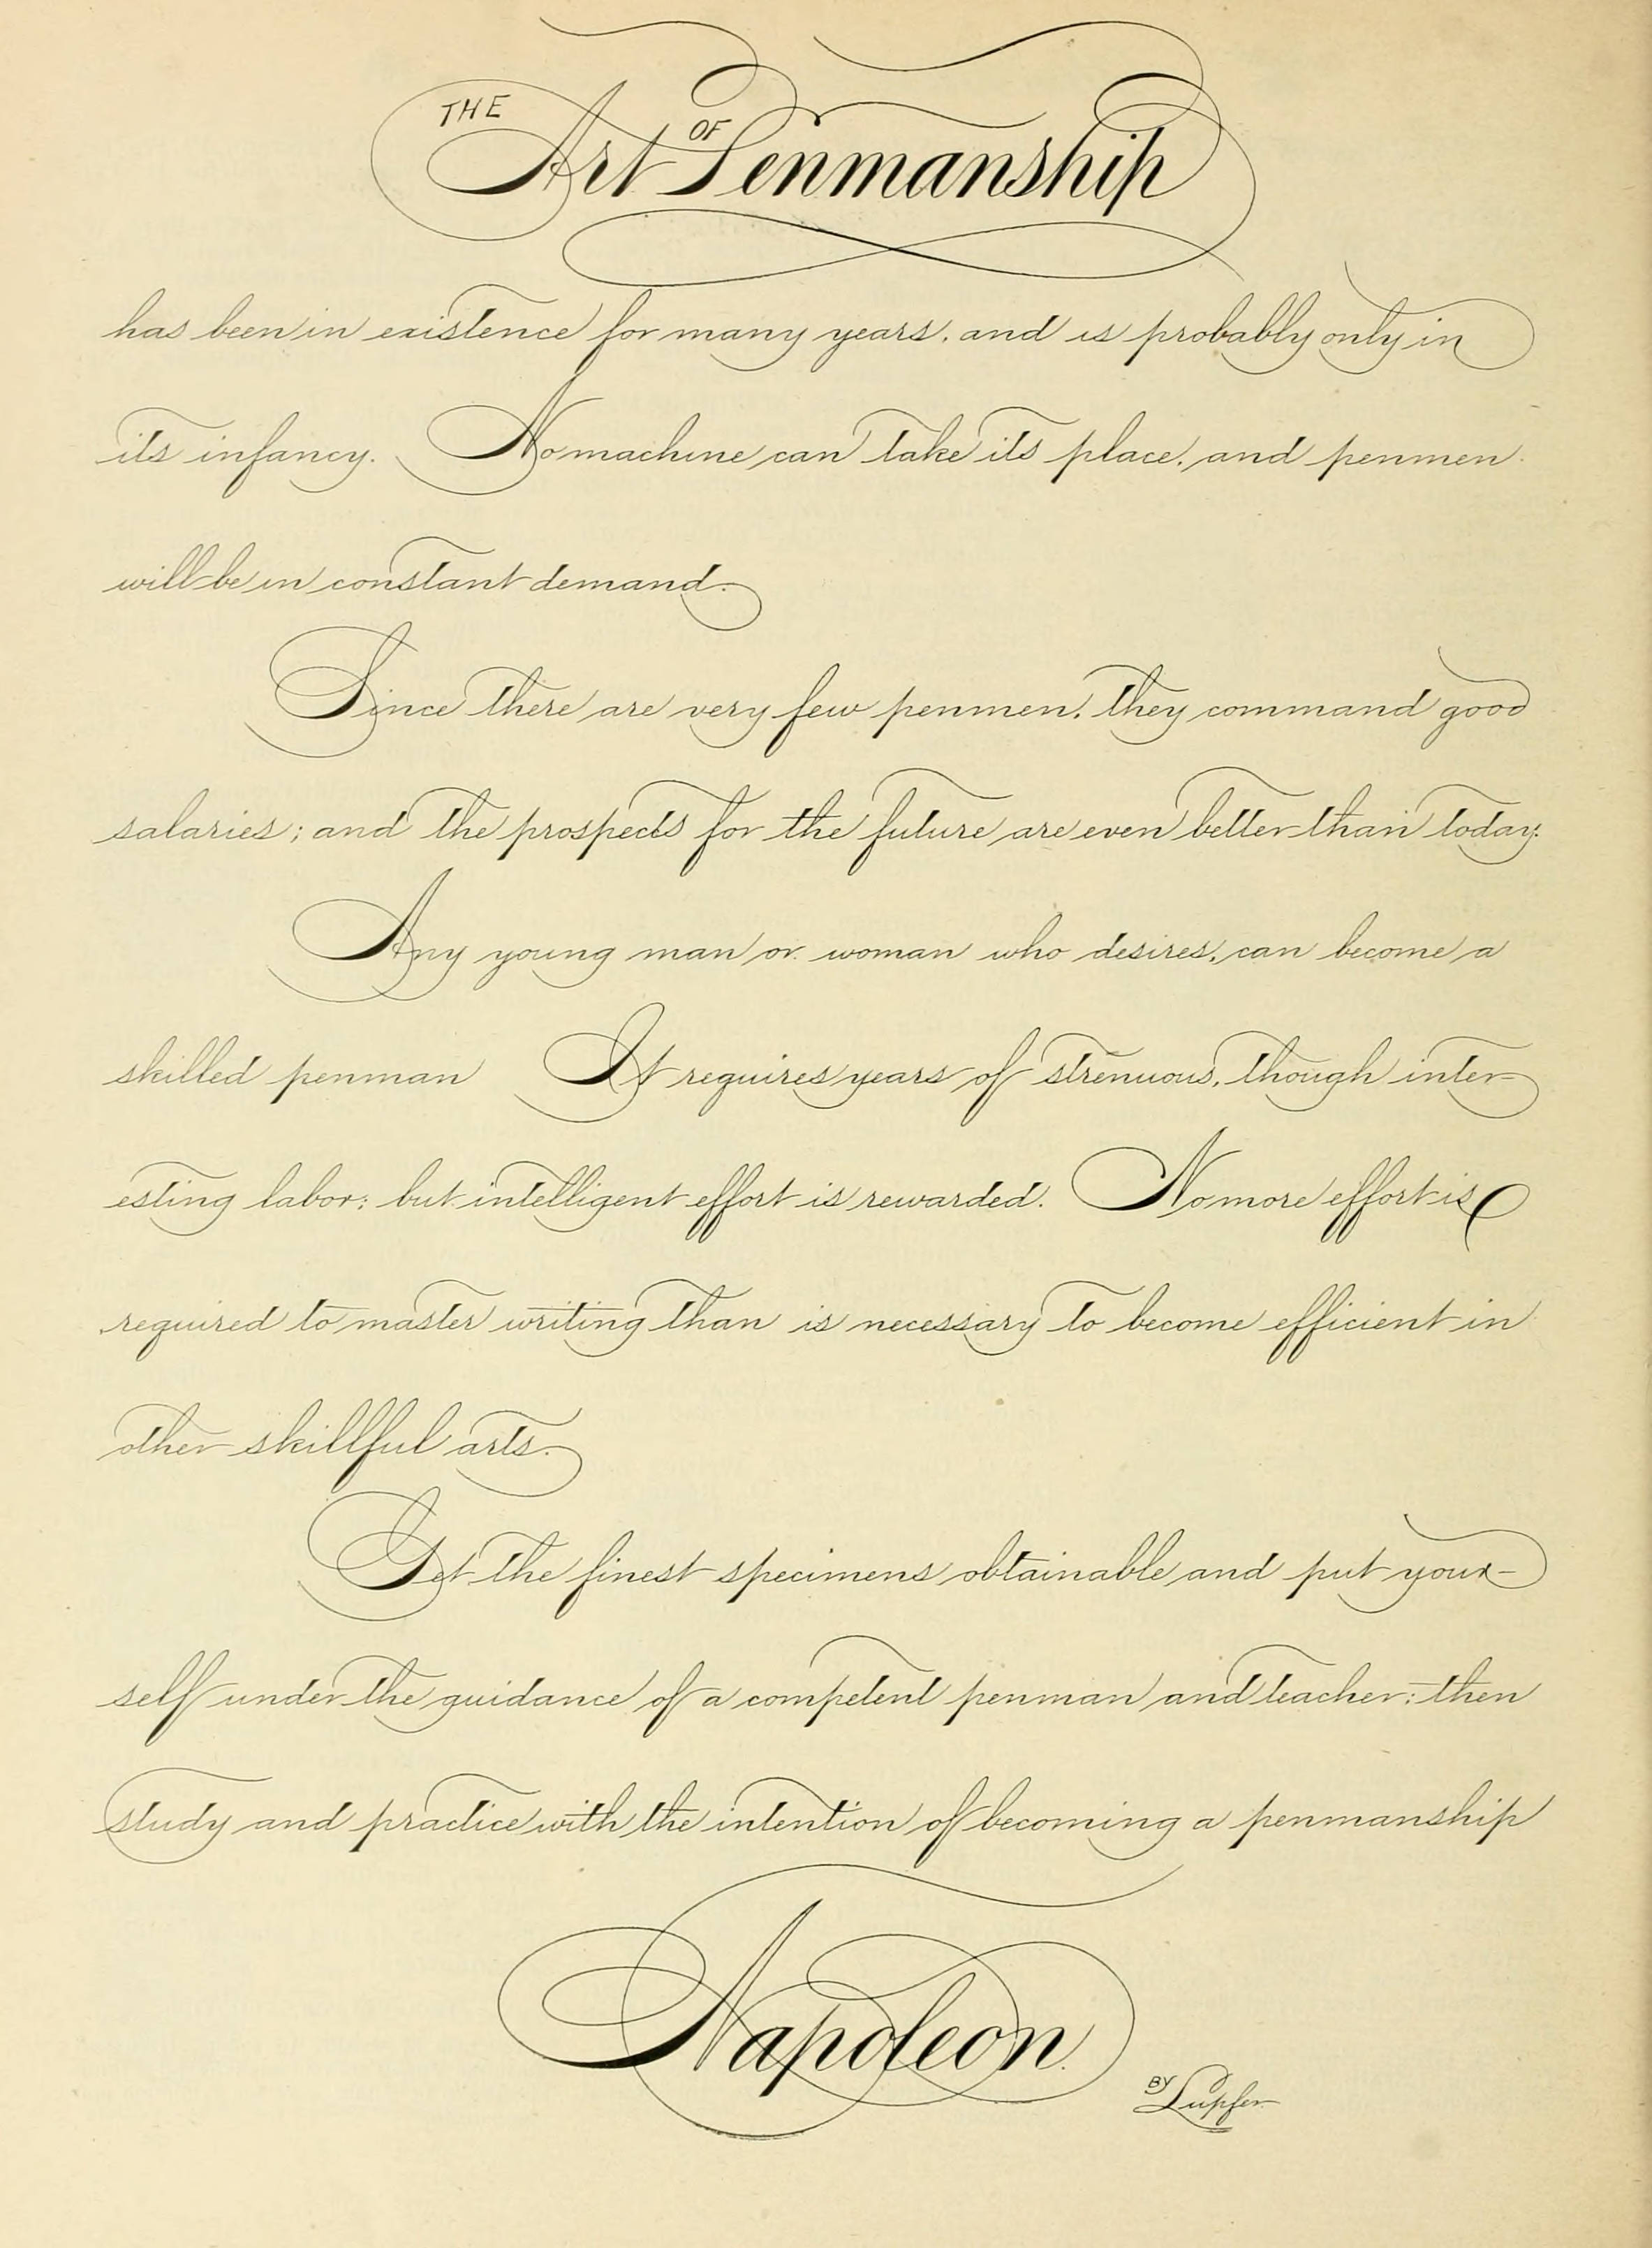 THE Art OF Penmanship
has been in existence for many years, and is probably only in
its infancy. No machine can take its place, and penmen
will be in constant demand.
Since there are very few penmen, they command good
salaries; and the prospects for the future are even better than today.
Any young man or woman who desires, can become a
skilled penman It requires years of strenuous, though inter-
esting labor; but intelligent effort is rewarded. No more effort is
required to master writing than is necessary to become efficient in
other skillful arts.
Get the finest specimens obtainable and put your-
self under the guidance of a competent penman and teacher; then
study and practice with the intention of becoming a penmanship
Napoleon.
BY Lupfer